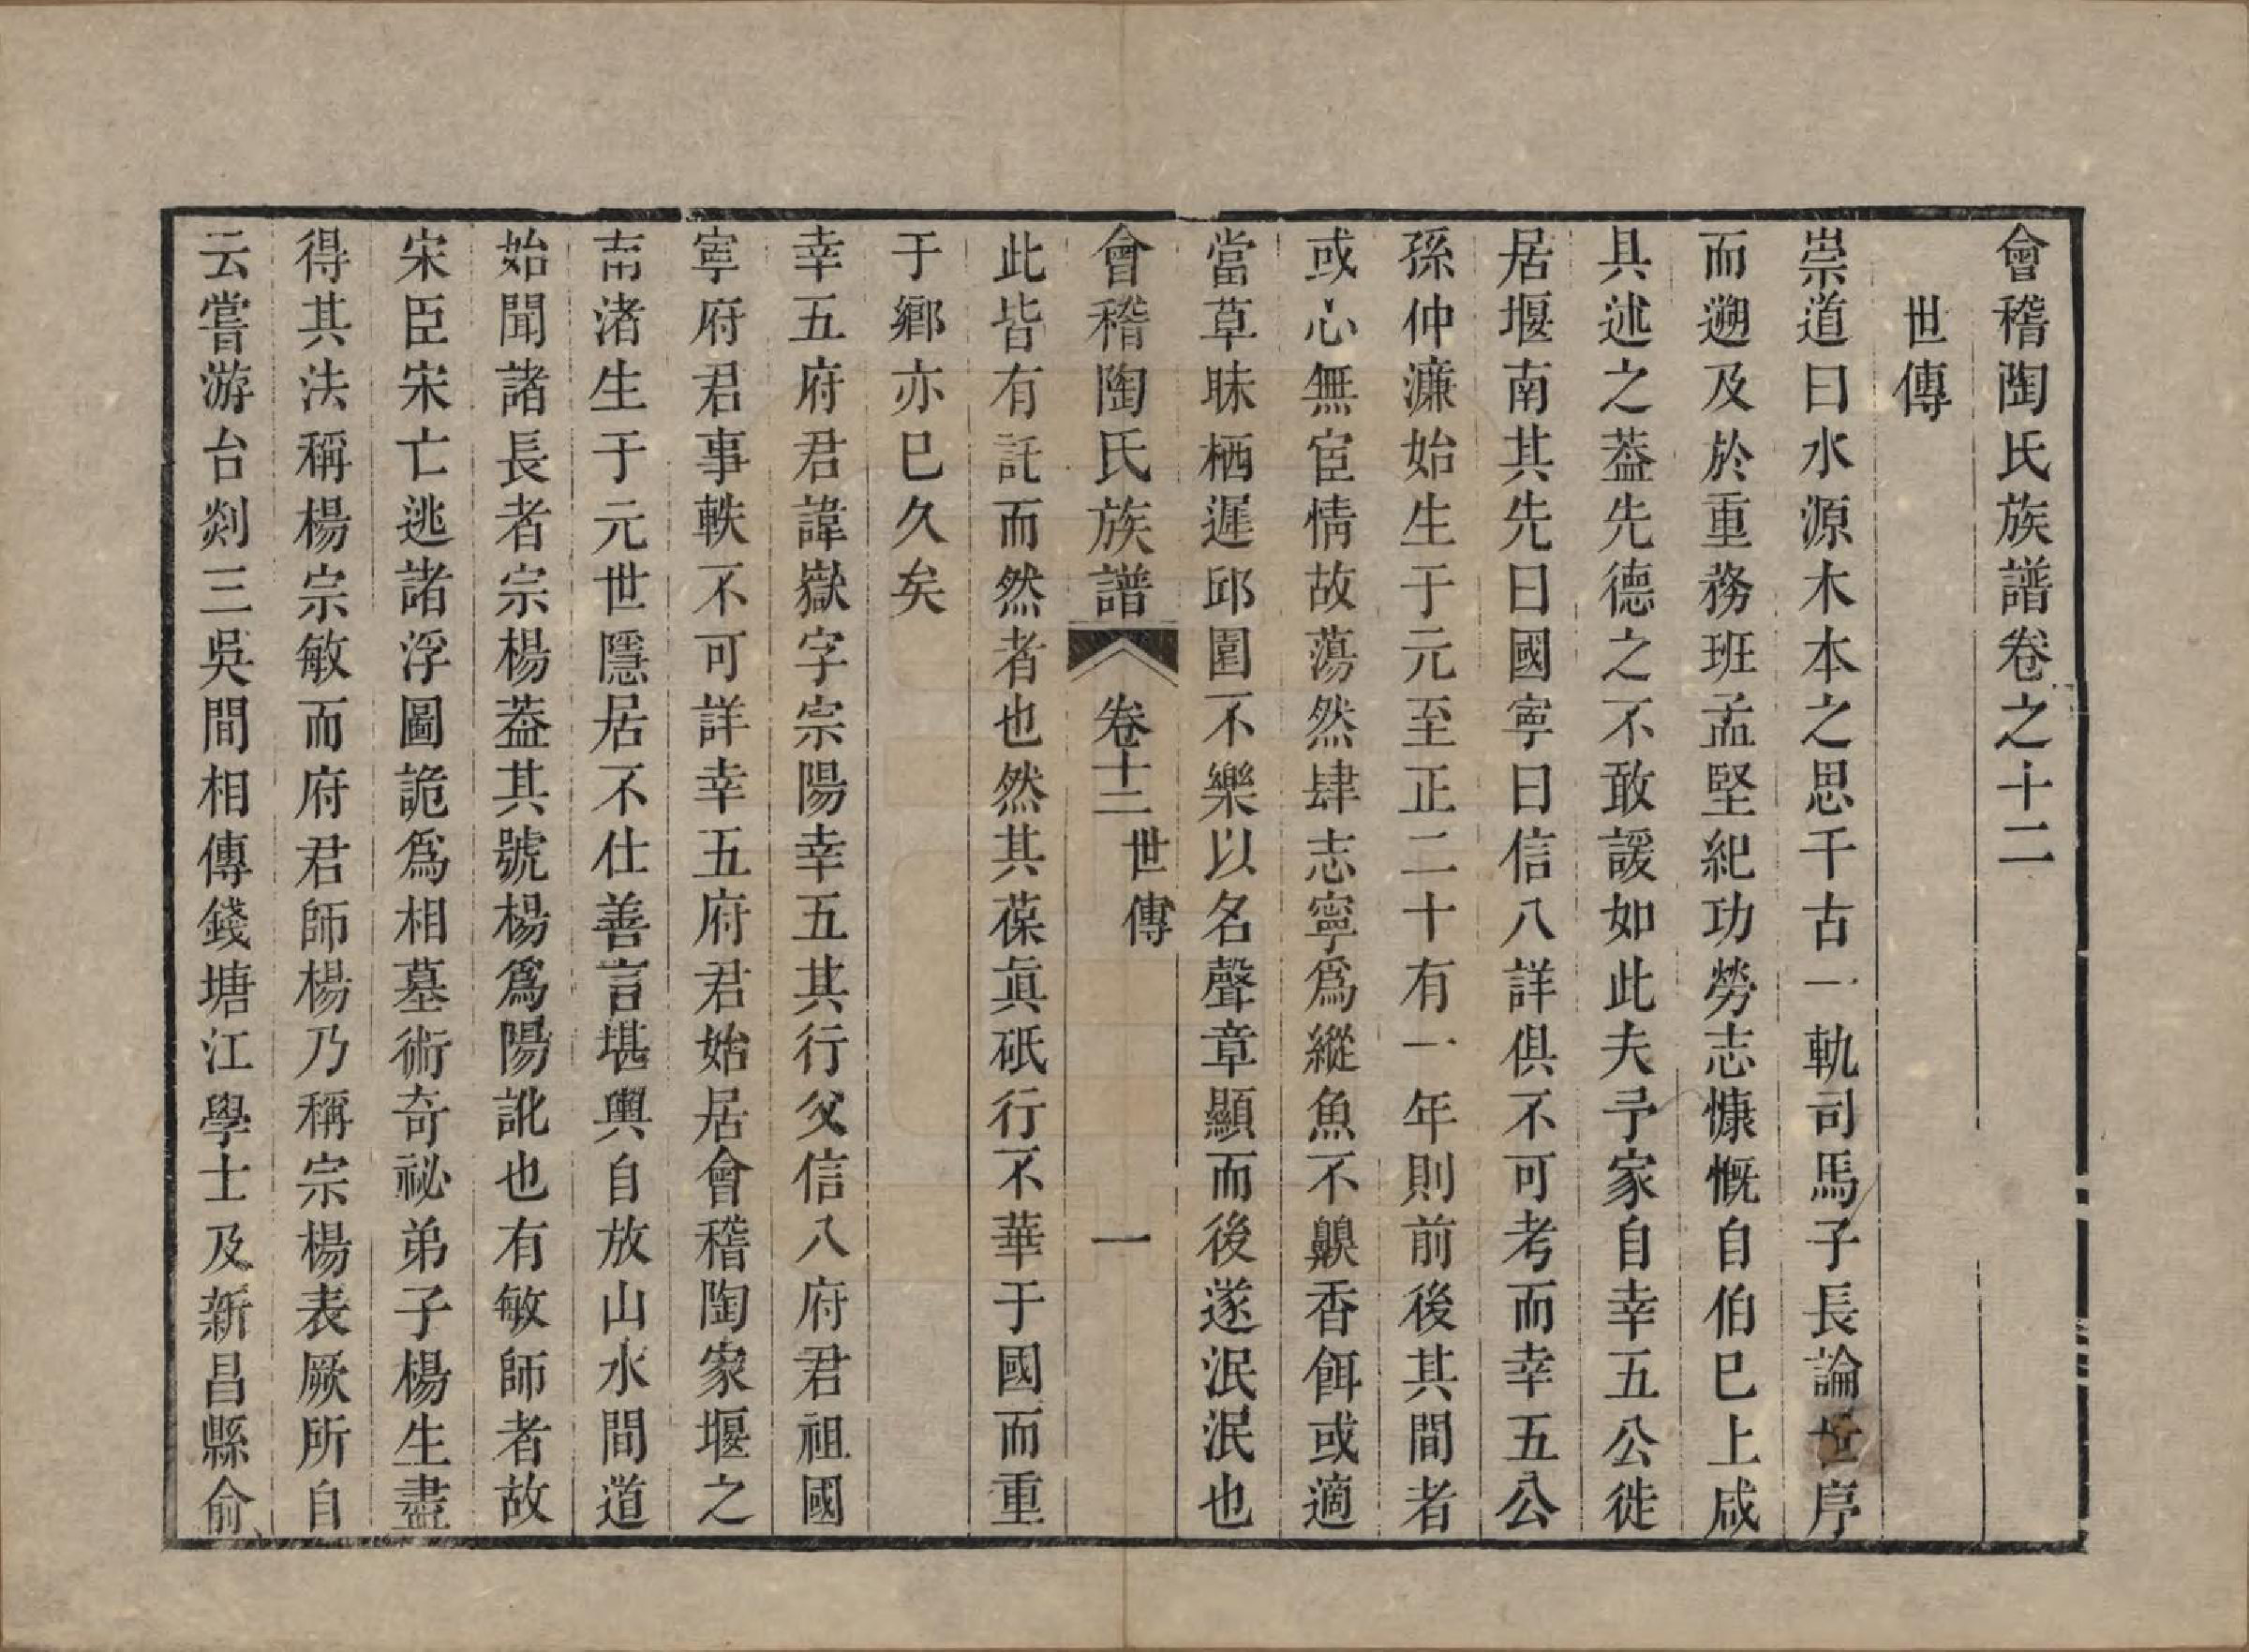 會稽陶氏族譜卷之十二
世傳
崇道曰水源木本之思千古一軌司馬子長論世序
而遡及於重務班孟堅紀功勞志慷慨自伯巳上咸
具述之葢先德之不敢諼如此夫予家自幸五公徙
居堰南其先曰國寧曰信八詳俱不可考而幸五公
孫仲濂始生于元至正二十有一年則前後其間者
或心無宦情故蕩然肆志寧爲縱魚不齅香餌或適
當草昧栖遲邱園不樂以名聲章顯而後遂泯泯也
會稽陶氏族譜 卷十二 世傳 一
此皆有託而然者也然其葆眞砥行不華于國而重
于鄉亦巳久矣
幸五府君諱嶽字宗陽幸五其行父信入府君祖國
寧府君事軼不可詳幸五府君始居會稽陶家堰之
南渚生于元世隱居不仕善言堪輿自放山水間道
始聞諸長者宗楊葢其號楊爲陽訛也有敏師者故
宋臣宋亡逃諸浮圖詭爲相墓術奇祕弟子楊生盡
得其法稱楊宗敏而府君師楊乃稱宗楊表厥所自
云嘗游台剡三吳間相傳錢塘江學士及新昌縣俞